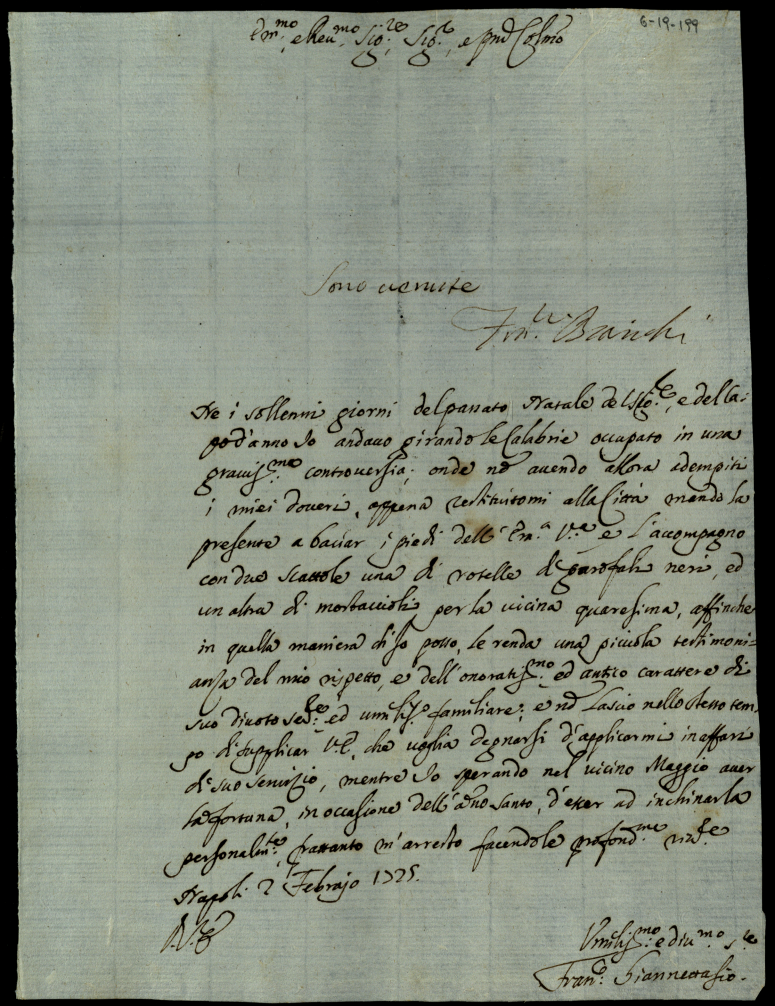 6-19-199
Em.mo e Reu.mo Sig.re Sig.r e Pnd Colmo
Sono uenute
Fra.lli Bianchi
Ne i sollenni giorni del passato Natale del Sig.re, e della
po d'anno Io andauo girando le Calabrie occupato in una
grauiss.ma controuersia; onde nõ auendo allora adempiti
i miei doueri, appena restituitomi alla Città mando la
presente a baciar i piedi dell' Em.a V.ra e l'accompagno
con due scattole una di rotelle di garofali neri, ed
un altra di mostaccioli per la uicina quaresima, affinche
in quella maniera ch'Io posso, le renda una piccola testimoni=
anza del mio rispetto, e dell'onoratiss.mo ed antico carattere di
suo diuoto ser.re ed umiliss.o familiare; e nõ lascio nello stesso tem-
po di supplicar V.E. che uoglia degnarsi d'applicarmi in affari
di suo seruizio, mentre Io sperando nel uicino Maggio auer
la fortuna, in occasione dell'año Santo, d'esser ad inchinarla
personalm.te, frattanto m'arresto facendole profond.me riu.ze
Napoli 2 Febrajo 1725.
D.V.E.
Vmiliss.mo e diu.mo s.re
Fran.co Giannettasio.